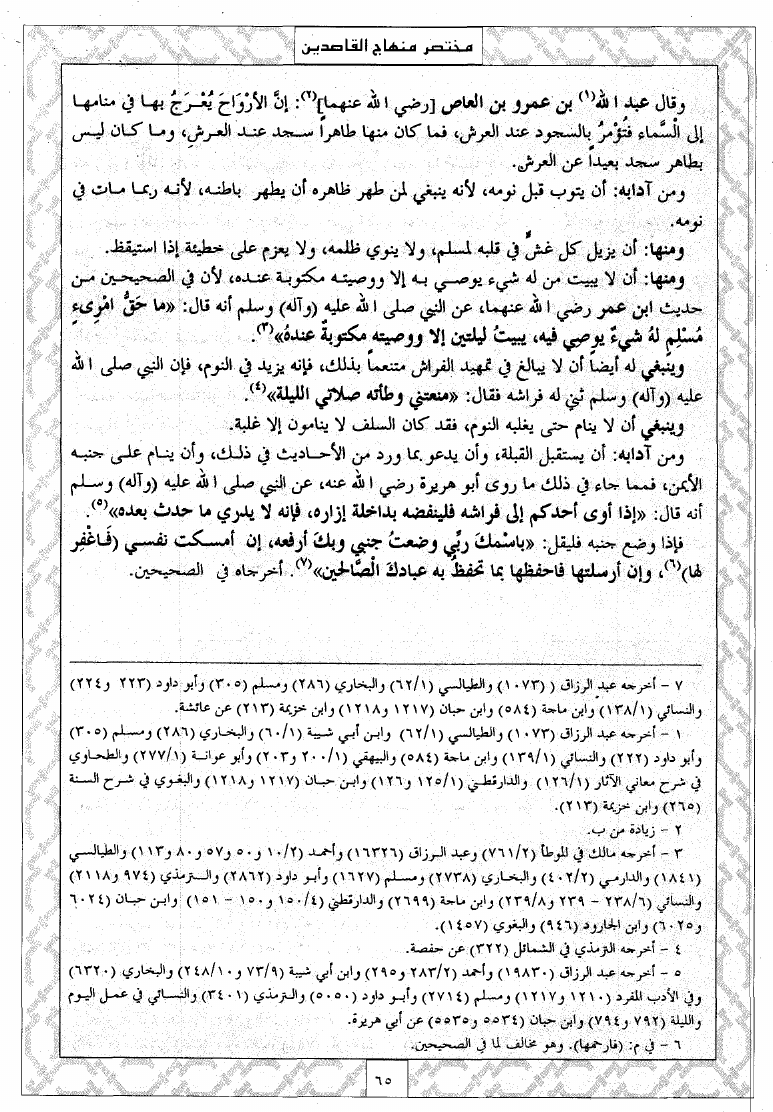 مختصر منهاج القاصدين
وقال عبد الله(١) بن عمرو بن العاص [رضي الله عنهما](٢): إنَّ الأرْوَاحَ يُعْرَجُ بها في منامها
إلى السَّماء فَتُؤْمرُ بالسجود عند العرش، فما كان منها طاهراً سجد عند العرش، وما كان ليس
بطاهر سجد بعيداً عن العرش.
ومن آدابه: أن يتوب قبل نومه، لأنه ينبغي لمن طهر ظاهره أن يطهر باطنه، لأنه ربما مات في
نومه.
ومنها: أن يزيل كل غشٍّ في قلبه لمسلم، ولا ينوي ظلمه، ولا يعزم على خطيئة إذا استيقظ.
ومنها: أن لا يبيت من له شيء يوصي به إلا ووصيته مكتوبة عنده، لأن في الصحيحين من
حديث ابن عمر رضي الله عنهما، عن النبي صلى الله عليه (وآله) وسلم أنه قال: «ما حَقُّ امْرِىءٍ
مُسْلِمٍ لهُ شيءٌ يوصِي فيه، يبيتُ ليلتين إلا ووصيته مكتوبةٌ عندهُ»(٣).
وينبغي له أيضاً أن لا يبالغ في تمهيد الفراش متنعماً بذلك، فإنه يزيد في النوم، فإن النبي صلى الله
عليه (وآله) وسلم ثني له فراشه فقال: «منعتني وطأته صلاتي الليلة»(٤).
وينبغي أن لا ينام حتى يغلبه النوم، فقد كان السلف لا ينامون إلا غلبة.
ومن آدابه: أن يستقبل القبلة، وأن يدعو بما ورد من الأحاديث في ذلك، وأن ينام على جنبه
الأيمن، فمما جاء في ذلك ما روى أبو هريرة رضي الله عنه، عن النبي صلى الله عليه (وآله) وسلم
أنه قال: «إذا أوى أحدكم إلى فراشه فلينفضه بداخلة إزاره، فإنه لا يدري ما حدث بعده»(٥).
فإذا وضع جنبه فليقل: «باسْمكَ ربِّي وضعتُ جنبي وبكَ أرفعه، إن أمسكت نفسي (فاغْفِر
لها)(٦)، وإن أرسلتها فاحفظها بما تحفظُ به عبادكَ الْصَّالحين»(٧). أخرجاه في الصحيحين.
٧ – أخرجه عبد الرزاق ( (١٠٧٣) والطيالسي (٦٢/١) والبخاري (٢٨٦) ومسلم (٣٠٥) وأبو داود (٢٢٣ و٢٢٤)
والنسائي (١٣٨/١) وابن ماجة (٥٨٤) وابن حبان (١٢١٧ و١٢١٨) وابن خزيمة (٢١٣) عن عائشة.
١ – أخرجه عبد الرزاق (١٠٧٣) والطيالسي (٦٢/١) وابن أبي شيبة (٦٠/١) والبخاري (٢٨٦) ومسلم (٣٠٥)
وأبو داود (٢٢٢) والنسائي (١٣٩/١) وابن ماجة (٥٨٤) والبيهقي (٢٠٠/١ و٢٠٣) وأبو عوانة (٢٧٧/١) والطحاوي
في شرح معاني الآثار (١٢٦/١) والدارقطني (١٢٥/١ و١٢٦) وابن حبان (١٢١٧ و١٢١٨) والبغوي في شرح السنة
(٢٦٥) وابن خزيمة (٢١٣).
٢ – زيادة من ب.
٣ – أخرجه مالك في الموطأ (٧٦١/٢) وعبد الرزاق (١٦٣٢٦) وأحمد (١٠/٢ و٥٠ و٥٧ و٨٠ و١١٣) والطيالسي
(١٨٤١) والدارمي (٤٠٢/٢) والبخاري (٢٧٣٨) ومسلم (١٦٢٧) وأبو داود (٢٨٦٢) والترمذي (٩٧٤ و٢١١٨)
والنسائي (٢٣٨/٦ – ٢٣٩ و٢٣٩/٨) وابن ماجة (٢٦٩٩) والدارقطني (١٥٠/٤ و١٥٠ – ١٥١) وابن حبان (٦٠٢٤
و٦٠٢٥) وابن الجارود (٩٤٦) والبغوي (١٤٥٧).
٤ – أخرجه الترمذي في الشمائل (٣٢٢) عن حفصة.
٥ – أخرجه عبد الرزاق (١٩٨٣٠) وأحمد (٢٨٣/٢ و٢٩٥) وابن أبي شيبة (٧٣/٩ و٢٤٨/١٠) والبخاري (٦٣٢٠)
وفي الأدب المفرد (١٢١٠ و١٢١٧) ومسلم (٢٧١٤) وأبو داود (٥٠٥٠) والترمذي (٣٤٠١) والنسائي في عمل اليوم
والليلة (٧٩٢ و٧٩٤) وابن حبان (٥٥٣٤ و٥٥٣٥) عن أبي هريرة.
٦ – في م: (فارحمها). وهو مخالف لما في الصحيحين.
٦٥